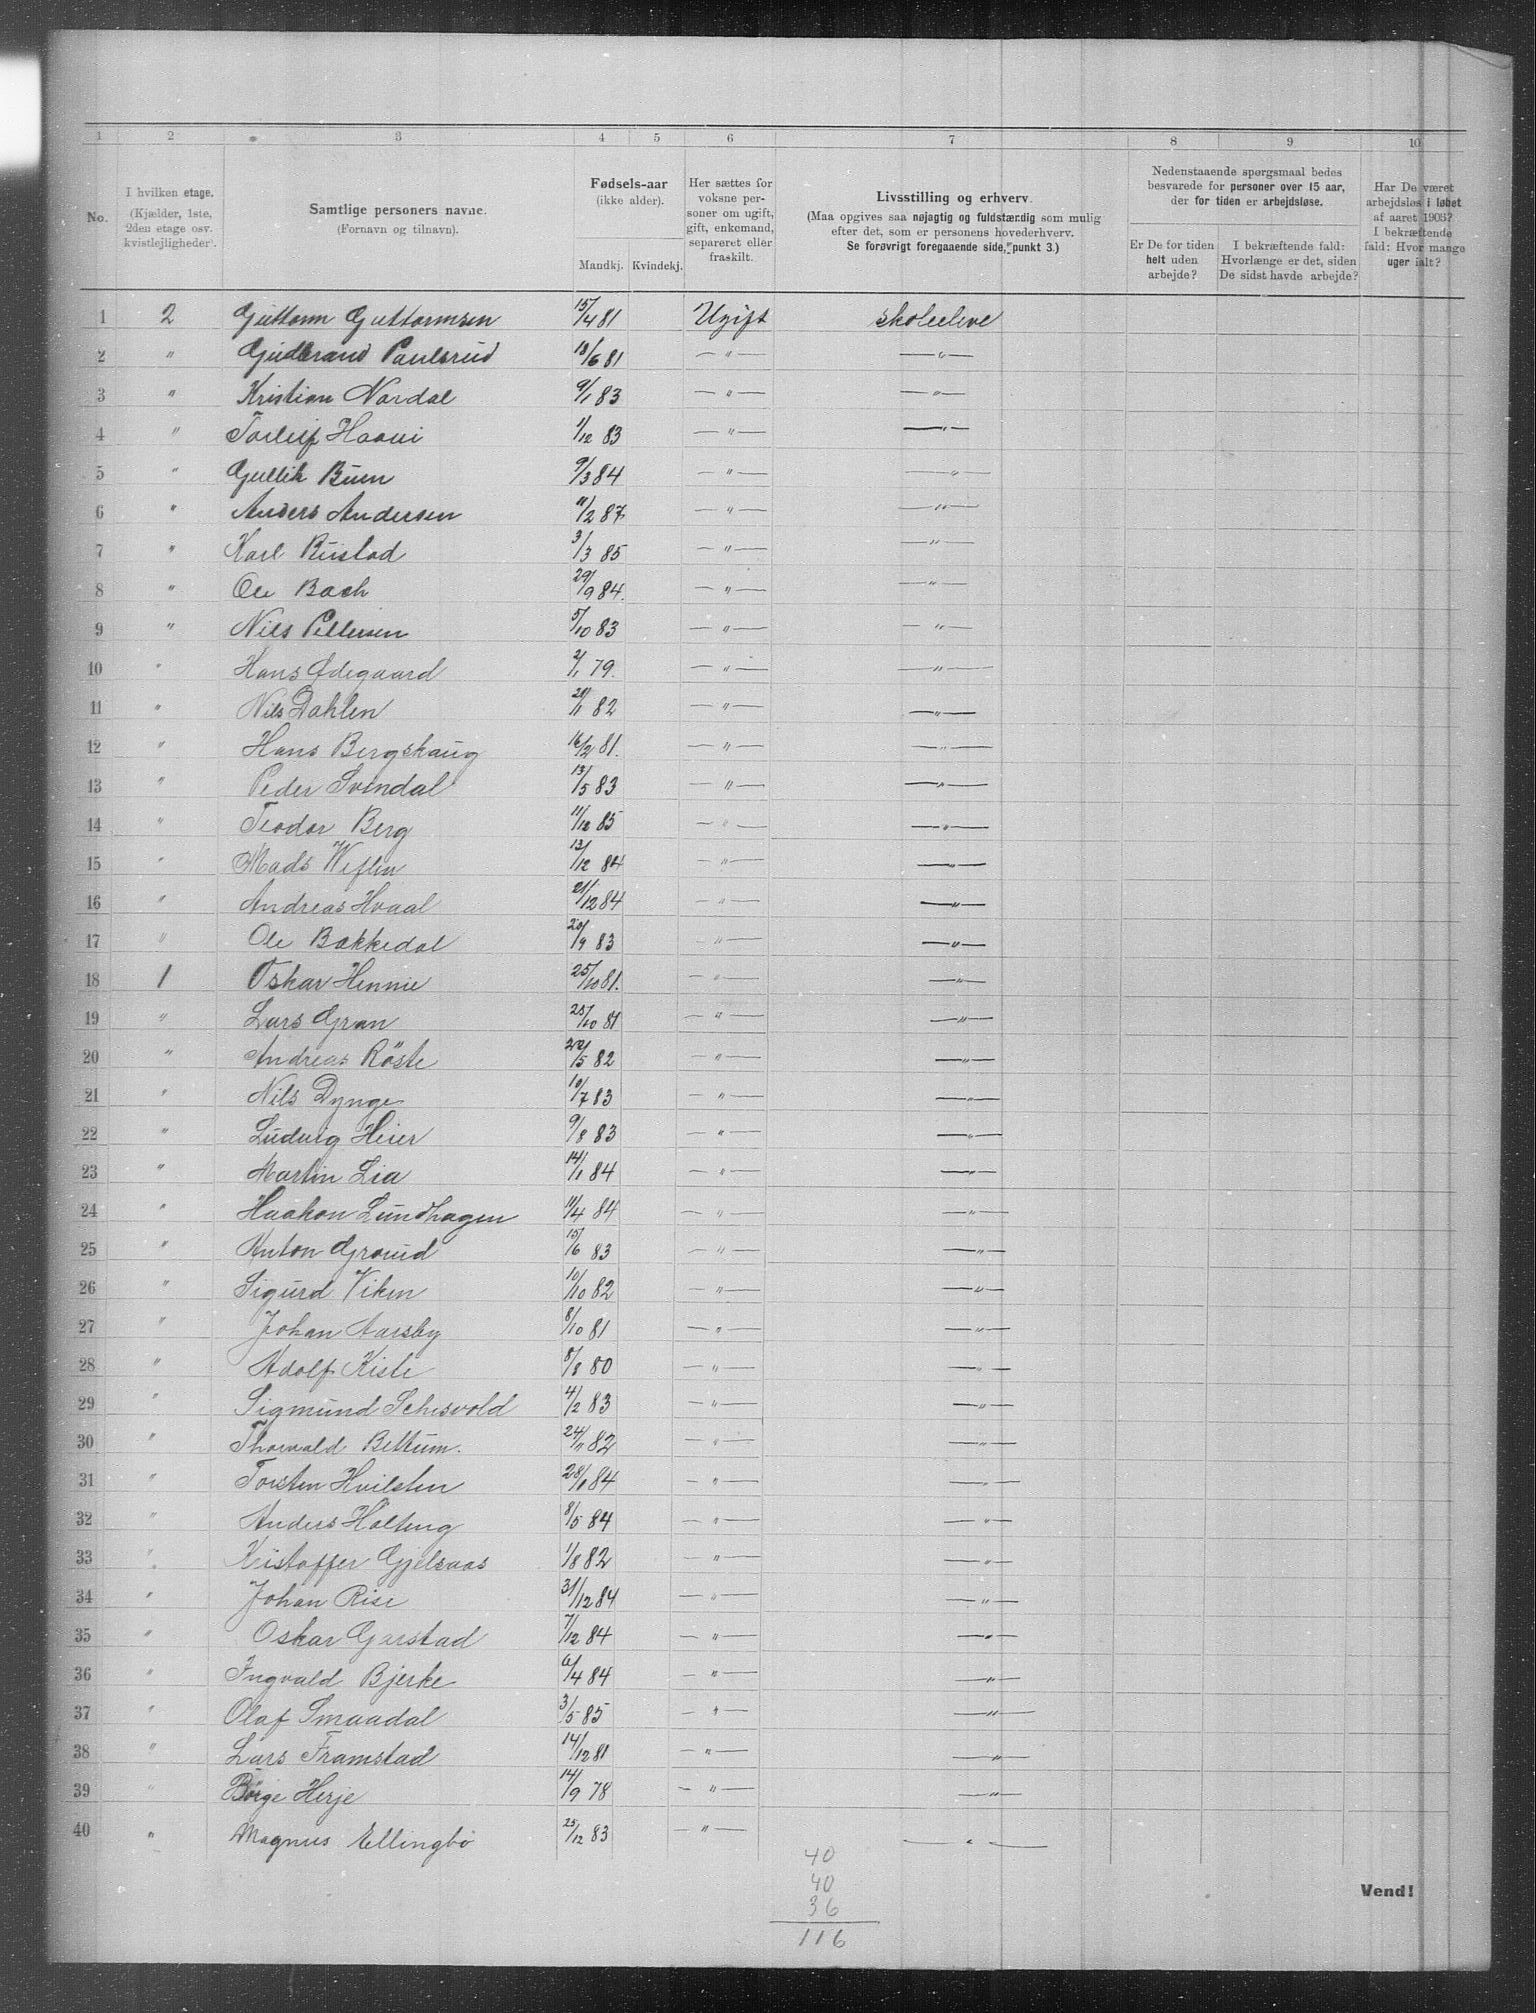 1 2 3 4 5 6 7 8 9 10
No.
I hvilken etage. (Kjælder, 1ste, 2den etage osv. kvistlejligheder).
Samtlige personers navne. (Fornavn og tilnavn).
Fødsels-aar (ikke alder). Mandkj. Kvindekj.
Her sættes for voksne personer om ugift, gift, enkemand, separeret eller fraskilt.
Livsstilling og erhverv. (Maa opgives saa nøjagtig og fuldstændig som mulig efter det, som er personens hovederhverv. Se forøvrigt foregaaende side, punkt 3.)
Nedenstaaende spørgsmaal bedes besvarede for personer over 15 aar, der for tiden er arbejdsløse.
Er De for tiden helt uden arbejde?
I bekræftende fald: Hvorlænge er det, siden De sidst havde arbejde?
Har De været arbejdsløs i løbet af aaret 1905? I bekræftende fald: Hvor mange uger ialt?
1 2 Guttorm Guttormsen 15/4 81 Ugift skoleelev
2 " Gudbrand Paulsrud 18/6 81 — " — — " —
3 " Kristian Nordal 9/1 83 — " — — " —
4 " Torleif Haavi 1/12 83 — " — — " —
5 " Gullik Buen 9/3 84 — " — — " —
6 " Anders Andersen 11/2 87 — " — — " —
7 " Karl Rustad 3/3 85 — " — — " —
8 " Ole Bach 29/9 84. — " — — " —
9 " Nils Pettersen 5/10 83 — " — — " —
10 " Hans Ødegaard 2/1 79. — " — — " —
11 " Nils Dahlen 28/1 82 — " — — " —
12 " Hans Bergshaug 16/2 81. — " — — " —
13 " Peder Svendal 13/5 83 — " — — " —
14 " Teodor Berg 11/12 85 — " — — " —
15 " Mads Weflen 13/12 84 — " — — " —
16 " Andreas Hvaal 21/12 84 — " — — " —
17 " Ole Bakkedal 20/9 83 — " — — " —
18 1 Oskar Hennie 25/10 81. — " — — " —
19 " Lars Gran 25/10 81 — " — — " —
20 " Andreas Röste 20/5 82 — " — — " —
21 " Nils Dynge 10/7 83 — " — — " —
22 " Ludvig Heier 9/8 83 — " — — " —
23 " Martin Lia 14/1 84 — " — — " —
24 " Haakon Lundhagen 11/4 84 — " — — " —
25 " Anton Groud 15/6 83 — " — — " —
26 " Sigurd Viken 10/10 82 — " — — " —
27 " Johan Aarsby 8/10 81 — " — — " —
28 " Adolf Kiste 8/8 80 — " — — " —
29 " Sigmund Schisvold 4/2 83 — " — — " —
30 " Thorvald Bettum. 24/11 82 — " — — " —
31 " Torsten Hvilsten 28/1 84 — " — — " —
32 " Anders Holteng 8/5 84 — " — — " —
33 " Kristoffer Gjelsaas 1/8 82 — " — — " —
34 " Johan Rise 31/12 84 — " — — " —
35 " Oskar Garstad 7/12 84 — " — — " —
36 " Ingvald Bjerke 6/4 84 — " — — " —
37 " Olaf Smaadal 3/5 85 — " — — " —
38 " Lars Framstad 14/12 81 — " — — " —
39 " Børge Herje 14/9 78 — " — — " —
40 " Magnus Ellingbö 25/12 83 — " — — " —
40
40
36
116
Vend!